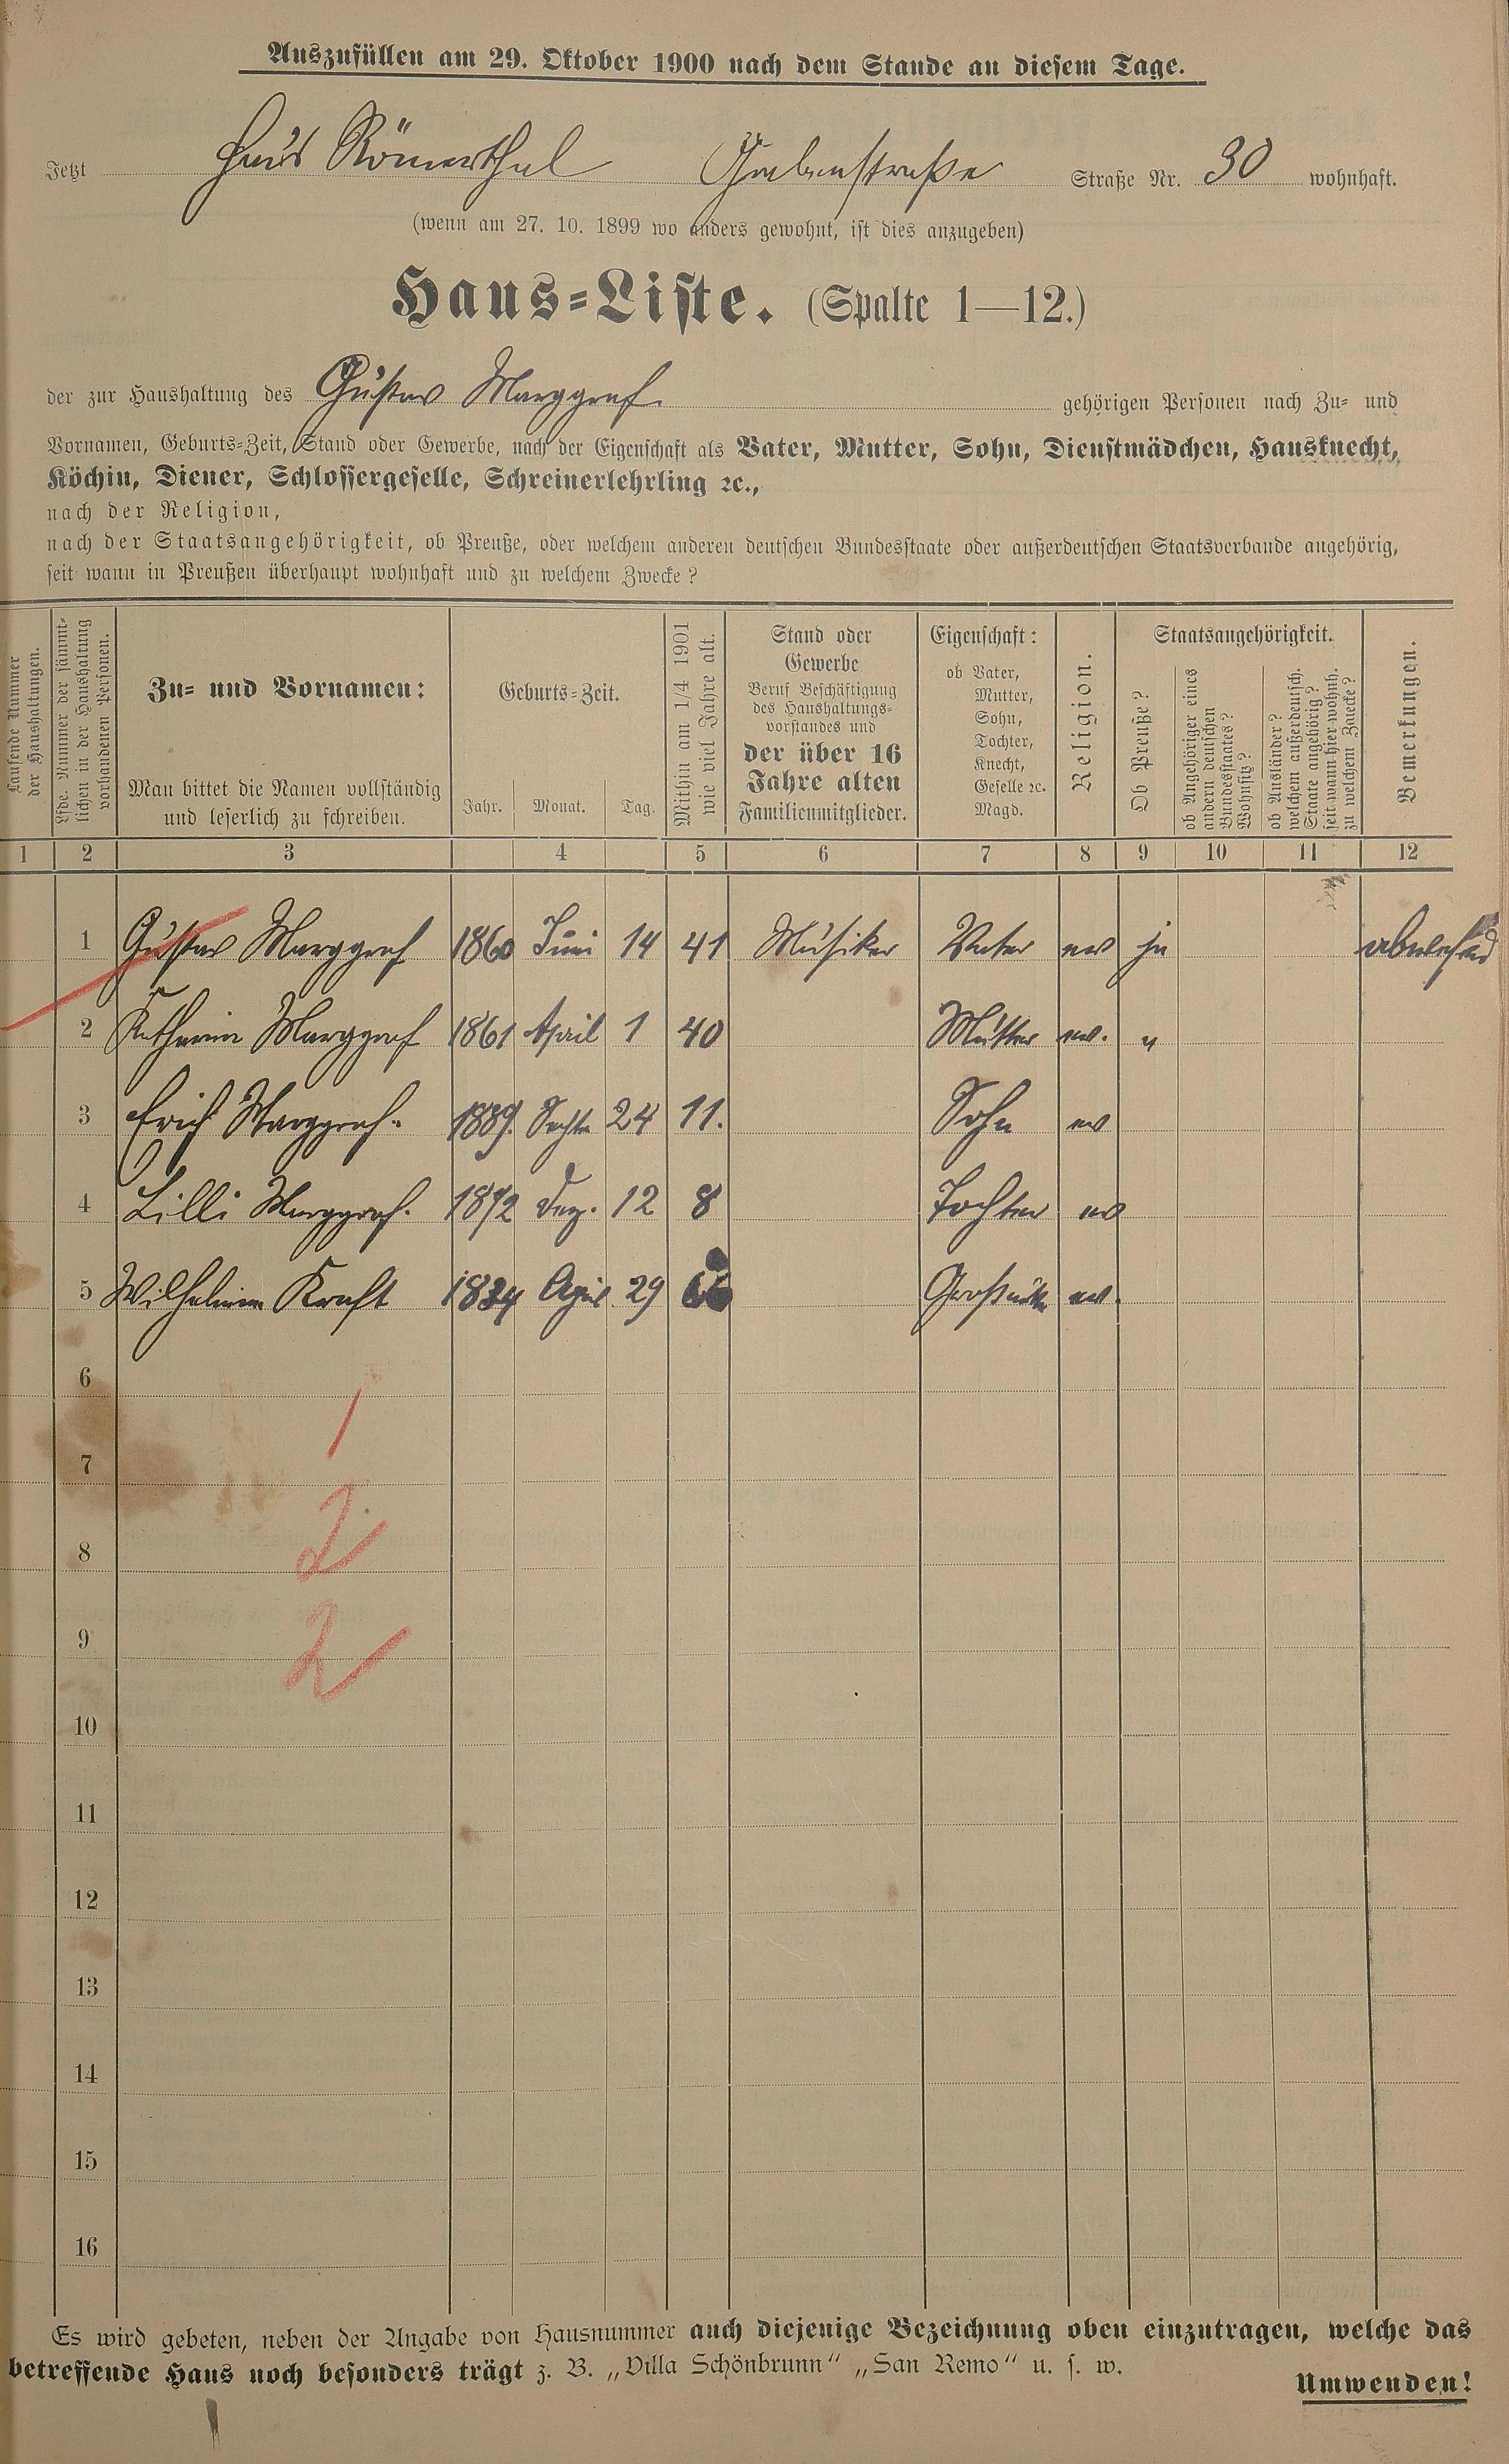 Auszufüllen am 29. Oktober 1900 nach dem Stande an diesem Tage.
Jetzt Haus Römerthal Grabenstraße Straße Nr. 30 wohnhaft.
(wenn am 27. 10. 1899 wo anders gewohnt, ist dies anzugeben)
Haus-Liste. (Spalte 1—12.)
der zur Haushaltung des Gustav Marggraf. gehörigen Personen nach Zu- und
Vornamen, Geburts-Zeit, Stand oder Gewerbe, nach der Eigenschaft als Vater, Mutter, Sohn, Dienstmädchen, Hausknecht,
Köchin, Diener, Schlossergeselle, Schreinerlehrling ꝛc.,
nach der Religion,
nach der Staatsangehörigkeit, ob Preuße, oder welchem anderen deutschen Bundesstaate oder außerdeutschen Staatsverbande angehörig,
seit wann in Preußen überhaupt wohnhaft und zu welchem Zwecke?
Laufende Nummer
der Haushaltungen.
Lfde. Nummer der sämmt-
lichen in der Haushaltung
vorhandenen Personen.
Zu- und Vornamen:
Man bittet die Namen vollständig
und leserlich zu schreiben.
Geburts-Zeit.
Jahr. Monat. Tag.
Mithin am 1/4 1901
wie viel Jahre alt.
Stand oder
Gewerbe
Beruf Beschäftigung
des Haushaltungs-
vorstandes und
der über 16
Jahre alten
Familienmitglieder.
Eigenschaft:
ob Vater,
Mutter,
Sohn,
Tochter,
Knecht,
Geselle ꝛc.
Magd.
Religion.
Staatsangehörigkeit.
Ob Preuße?
ob Angehöriger eines
andern deutschen
Bundesstaates?
Wohnsitz?
ob Ausländer?
welchem außerdeutsch.
Staate angehörig?
seit wann hier wohnh.
zu welchem Zwecke?
Bemerkungen.
1 2 3 4 5 6 7 8 9 10 11 12
1 Gustav Marggraf 1860 Juni 14 41 Musiker Vater ev ja
2 Katharina Marggraf 1861 April 1 40 Mutter ev. "
3 Erich Marggraf. 1889. 24 11. Sohn ev
4 Lilli Marggraf. 1892 Dez. 12 8 Tochter ev
5 Wilhelmine Kraft 1834 April 29 66 ev.
6
1
7
2
8
2
9
10
11
12
13
14
15
16
Es wird gebeten, neben der Angabe von Hausnummer auch diejenige Bezeichnung oben einzutragen, welche das
betreffende Haus noch besonders trägt z. B. „Villa Schönbrunn“ „San Remo“ u. s. w.
Umwenden!